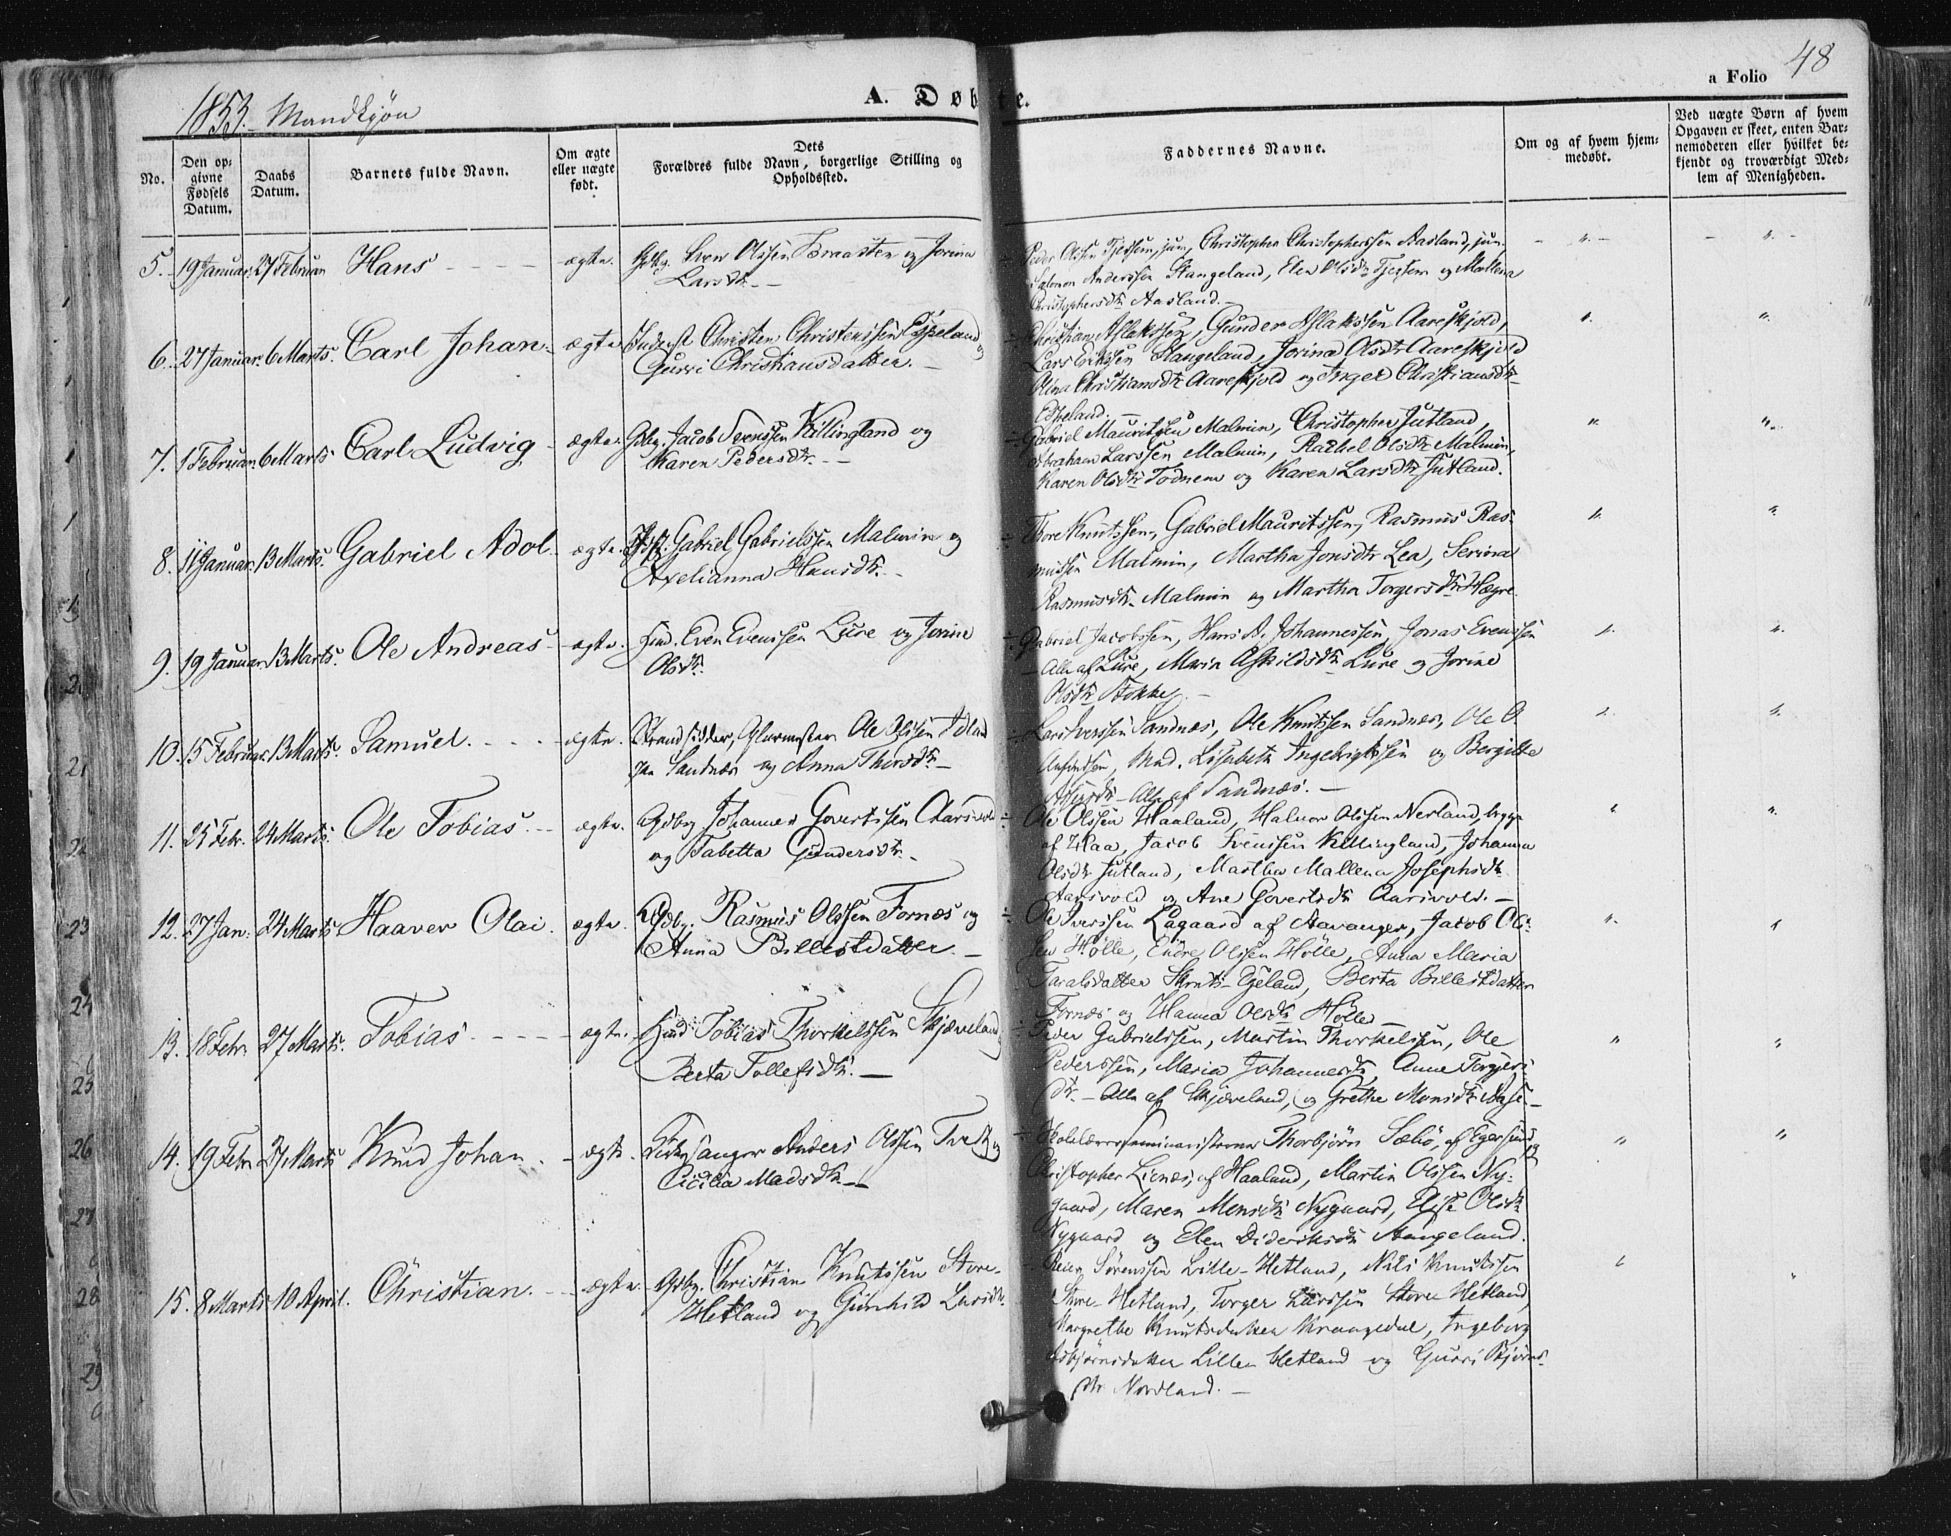 1853. Mandkjøn
A. Døbte.
a Folio 48
No.
Den opgivne Fødsels Datum.
Daabs Datum.
Barnets fulde Navn.
Om ægte eller nægte født.
Dets Forældres fulde Navn, borgerlige Stilling og Opholdssted.
Faddernes Navne.
Om og af hvem hjemmedøbt.
Ved nægte Børn af hvem Opgaven er skeet, enten Barnemoderen eller hvilket bekjendt og troværdigt Medlem af Menigheden.
5. 19 Januar. 27 Februar Hans ægte. Gdbr. Sven Olssen Braasten og Jorina
Larsdtr.
Peder Olssen Tjessem, jun, Christopher Christopherssen Aasland, jun.
Salomon Anderssen Stangeland, Elen Olsdtr Tjessem og Mallena
Christophersdtr Aasland.
6. 27 Januar. 6 Marts. Carl Johan ægte Inderst Christen Christenssen Espeland og
Gurri Christiansdatter.
Christian Aslakssen, Gunder Aslakssen Aareskjold,
Lars Erikssen Stangeland, Jorina Olsdtr Aareskjold
Olina Christiansdtr Aareskjold og Inger Christiansdtr
Espeland.
7. 1 Februar 6 Marts Carl Ludvig ægte. Gdbr. Jacob Svenssen Killingland og
Karen Pedersdtr.
Gabriel Mauritzsen Malmin, Christopher Jutland,
Abraham Larssen Malmin, Rachel Olsdtr Malmin,
Karen Olsdtr Todnem og Karen Larsdtr Jutland.
8. 11 Januar. 13 Marts. Gabriel Adol ægte Gabriel Gabrielssen Malmin og
Axelianna Hansdtr.
Thore Knutssen, Gabriel Mauritssen, Rasmus Ras-
mussen Malmin, Martha Jonsdtr Lea, Serina
Rasmusdtr. Malmin og Martha Torgersdtr Høgre.
9. 19 Januar 13 Marts. Ole Andreas ægte. Huusm. Even Evenssen Lure og Jorine
Olsdtr.
Gabriel Jacobssen, Hans A. Johannessen, Jonas Evenssen
Alle af Lure, Maria Askildsdtr Lure og Jorine
Olsdtr Stokke.
10. 15 Februar. 13 Marts. Samuel. ægte. Strandsidder, Glarmester Ole Olssen Idland
paa Sandnæs og Anna Thorsdtr
Lars Iverssen Sandnæs, Ole Knutssen Sandnæs, Ole O.
Anfindsen, Mad. Lisabeth Ingebrigtssen og Bergitte
Alle af Sandnæs.
11. 25 Febr. 24 Marts. Ole Tobias. ægte. Gdbr Johannes Govertssen Aarsvold
og Tabetta Gundersdtr.
Ole Olssen Haaland, Halvor Olssen Nerland, begge
af Haa, Jacob Svenssen Killingland, Johanna
Olsdtr Jutland, Martha Mallena Josephsdtr
Aarsvold og Ane Govertsdtr Aarsvold.
12. 27 Jan. 24 Marts. Haaver Olai. ægte. Gdbr. Rasmus Olssen Fornæs og
Anna Billestdatter.
Ole Iverssen Lagaard af Stavanger, Jacob Ols-
sen Hølle, Endre Olssen Hølle, Anna Maria
Taralsdatter Egeland, Berta Billestdatter
Fornæs og Hanna Olsdtr Hølle.
13. 18 Febr. 27 Marts. Tobias. ægte. Huusm. Tobias Thorkelssen Skjæveland og
Berta Tollefsdtr.
Peder Gabrielssen, Martin Thorkelssen, Ole
Pederssen, Maria Johannesdtr, Anne Torgers-
dtr. - Alle af Skjæveland, og Grethe Monsdtr Aase
14. 19 Febr 27 Marts Knud Johan ægte Kirkesanger Anders Olssen Tvedt og
Cicilia Madsdtr.
Skolelærer Seminaristerne Thorbjørn Sæbø, af Egersund og
Christopher Lienæs, af Haaland, Martin Olssen Ny-
gaard, Maren Monsdtr Nygaard, Elise Olsdtr
Nygaard og Elen Dideriksdtr Stangeland.
15. 8 Marts 10 April. Christian. ægte. Gdbr. Christian Knutssen Store-
Hetland og Gunhild Larsdtr.
Reier Sørenssen Lille-Hetland, Nils Knutssen
Store-Hetland, Torger Larssen Store Hetland,
Margrethe Knutsdatter Kraagedal, Ingeborg
Asbjørnsdatter Lille Hetland og Gurri Bjørns-
dtr. Nordland.